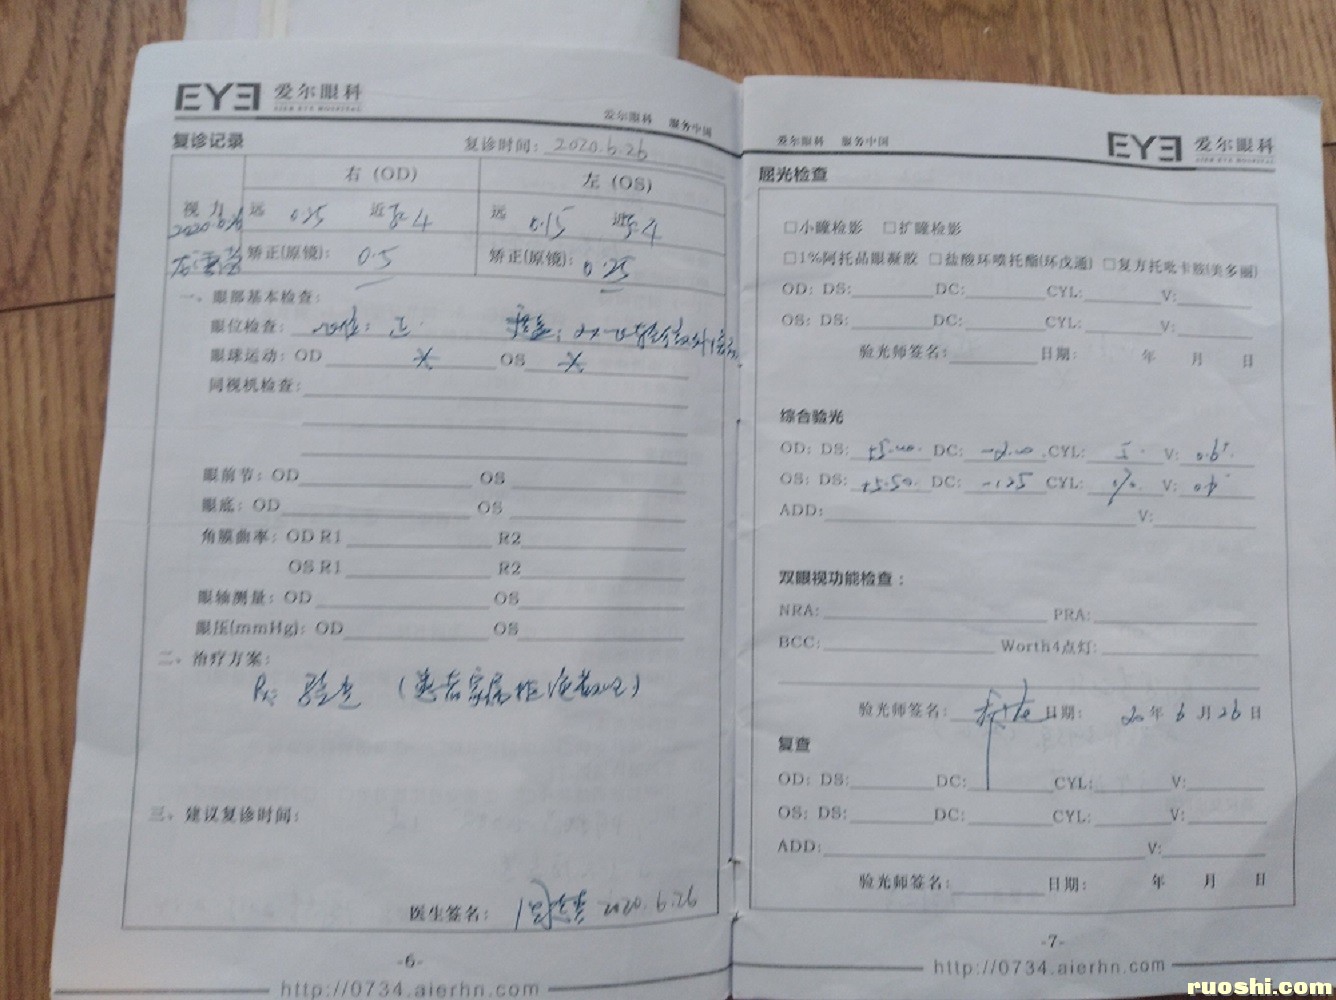 EYE 爱尔眼科
AIER EYE HOSPITAL
爱尔眼科 服务中国
复诊记录 复诊时间: 2020.6.26
右 (OD) 左 (OS)
视力 远 近 远 0.15 近
2020.6.26
矫正(原镜): 0.5 矫正(原镜): 0.25
一、眼部基本检查:
眼位检查: 正
眼球运动: OD OS
同视机检查:
眼前节: OD OS
眼底: OD OS
角膜曲率: OD R1 R2
OS R1 R2
眼轴测量: OD OS
眼压(mmHg): OD OS
二、治疗方案:
验光 (患者家属拒绝散瞳)
三、建议复诊时间:
医生签名: 2020.6.26
-6-
http://0734.aierhn.com
爱尔眼科 服务中国
EYE 爱尔眼科
AIER EYE HOSPITAL
屈光检查
□小瞳检影 □扩瞳检影
□1%阿托品眼凝胶 □盐酸环喷托酯(环戊通) □复方托吡卡胺(美多丽)
OD: DS: DC: CYL: V:
OS: DS: DC: CYL: V:
验光师签名: 日期: 年 月 日
综合验光
OD: DS: +5.00 DC: -2.00 CYL: V: 0.6
OS: DS: +5.50 DC: -1.25 CYL: V: 0.6
ADD: V:
双眼视功能检查:
NRA: PRA:
BCC: Worth4点灯:
验光师签名: 日期: 20 年 6 月 26 日
复查
OD: DS: DC: CYL: V:
OS: DS: DC: CYL: V:
ADD: V:
验光师签名: 日期: 年 月 日
-7-
http://0734.aierhn.com
ruoshi.com